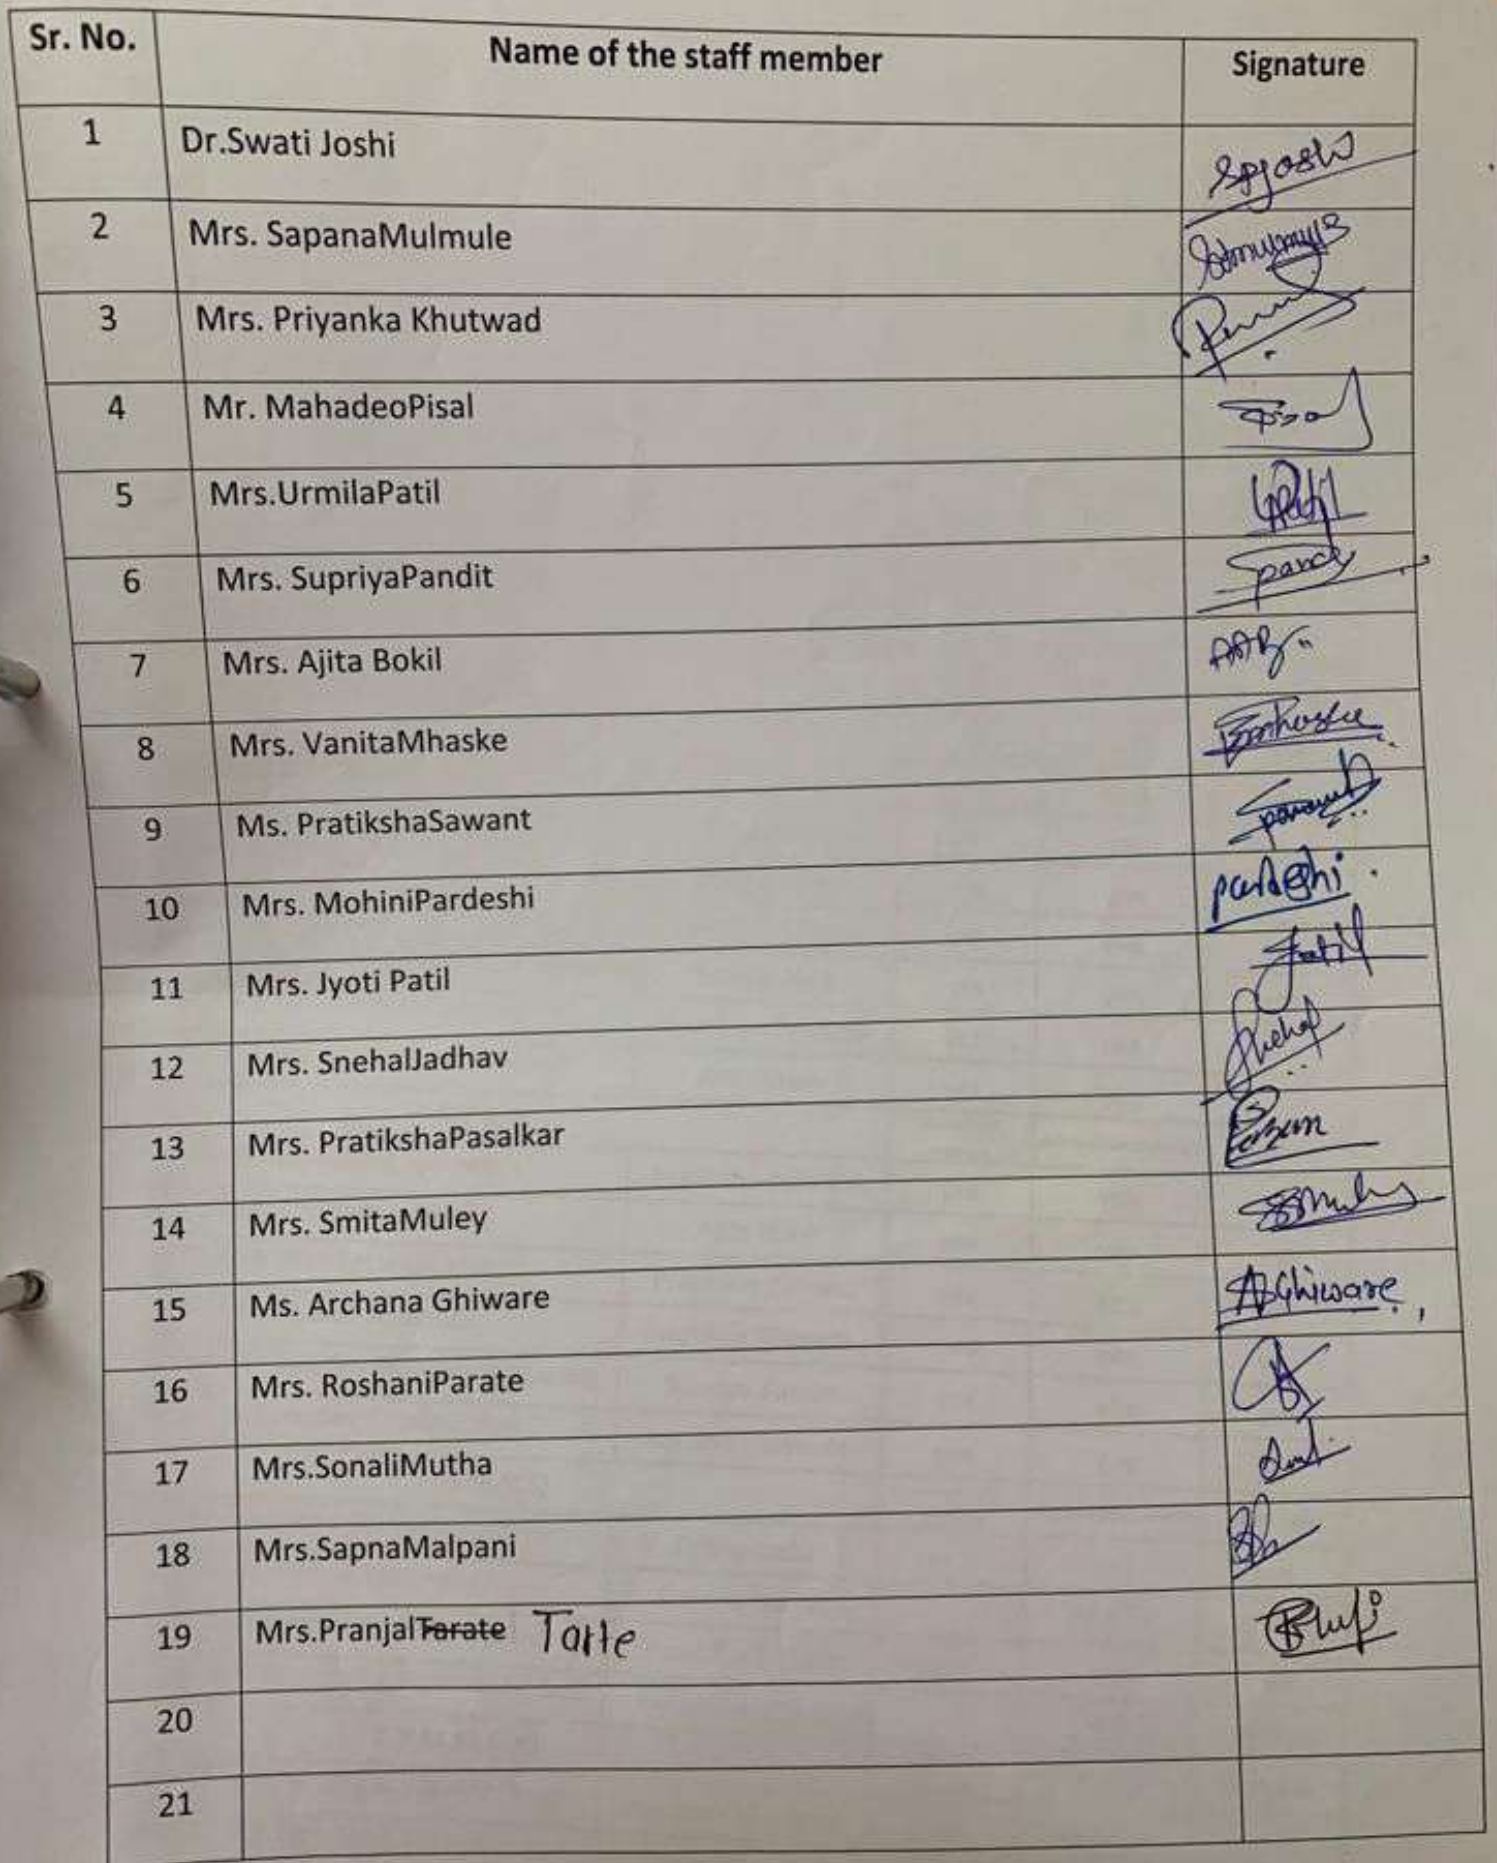 Sr. No. Name of the staff member Signature
1 Dr.Swati Joshi SPJoshi
2 Mrs. SapanaMulmule
3 Mrs. Priyanka Khutwad
4 Mr. MahadeoPisal
5 Mrs.UrmilaPatil UPatil
6 Mrs. SupriyaPandit
7 Mrs. Ajita Bokil AAB
8 Mrs. VanitaMhaske
9 Ms. PratikshaSawant
10 Mrs. MohiniPardeshi pardeshi
11 Mrs. Jyoti Patil JPatil
12 Mrs. SnehalJadhav Snehal
13 Mrs. PratikshaPasalkar
14 Mrs. SmitaMuley
15 Ms. Archana Ghiware ABGhiware
16 Mrs. RoshaniParate
17 Mrs.SonaliMutha
18 Mrs.SapnaMalpani
19 Mrs.PranjalTarate Tarte
20
21